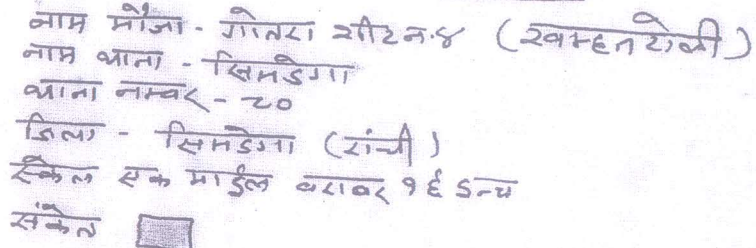 नाम मौजा - गोतरा शीट न.४ (खम्हनटोली)
नाम थाना - सिमडेगा
थाना नम्बर - २०
जिला - सिमडेगा (रांची)
स्केल एक माईल बराबर १६ इन्च
संकेत